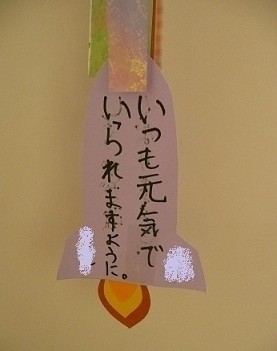 いつも元気で
いられますように。